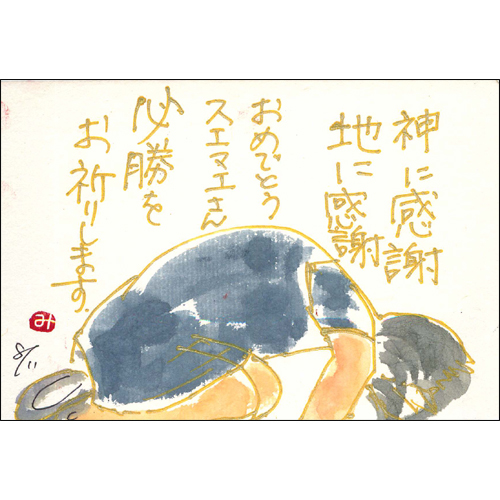 神に感謝
地に感謝
おめでとう
スエマエさん
必勝を
お祈りします。
み
8/11